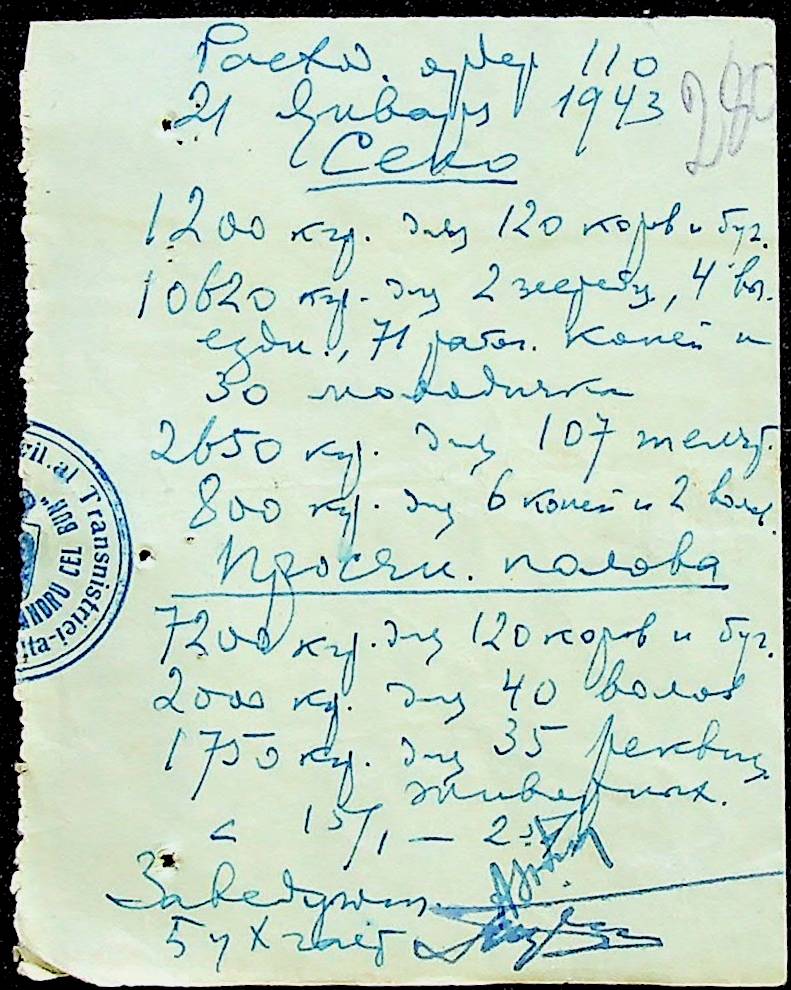 Расход. ордер 110
21 Января 1943
280
Сено
1200 кгр. для 120 коров и буг.
10620 кгр. для 2 жеребц., 4 вы.
ездн., 71 рабоч. коней и
30 молодняка
2650 кгр. для 107 телят.
800 кгр. для 6 коней и 2 волов.
Просян. полова
7200 кгр. для 120 коров и буг.
2000 кгр. для 40 волов
1750 кгр. для 35 реквиз.
животных.
с 15/I —
Заведующ.
5 уч. хозяйст
zil. al Transnistriei
ANDRU CEL BUN"